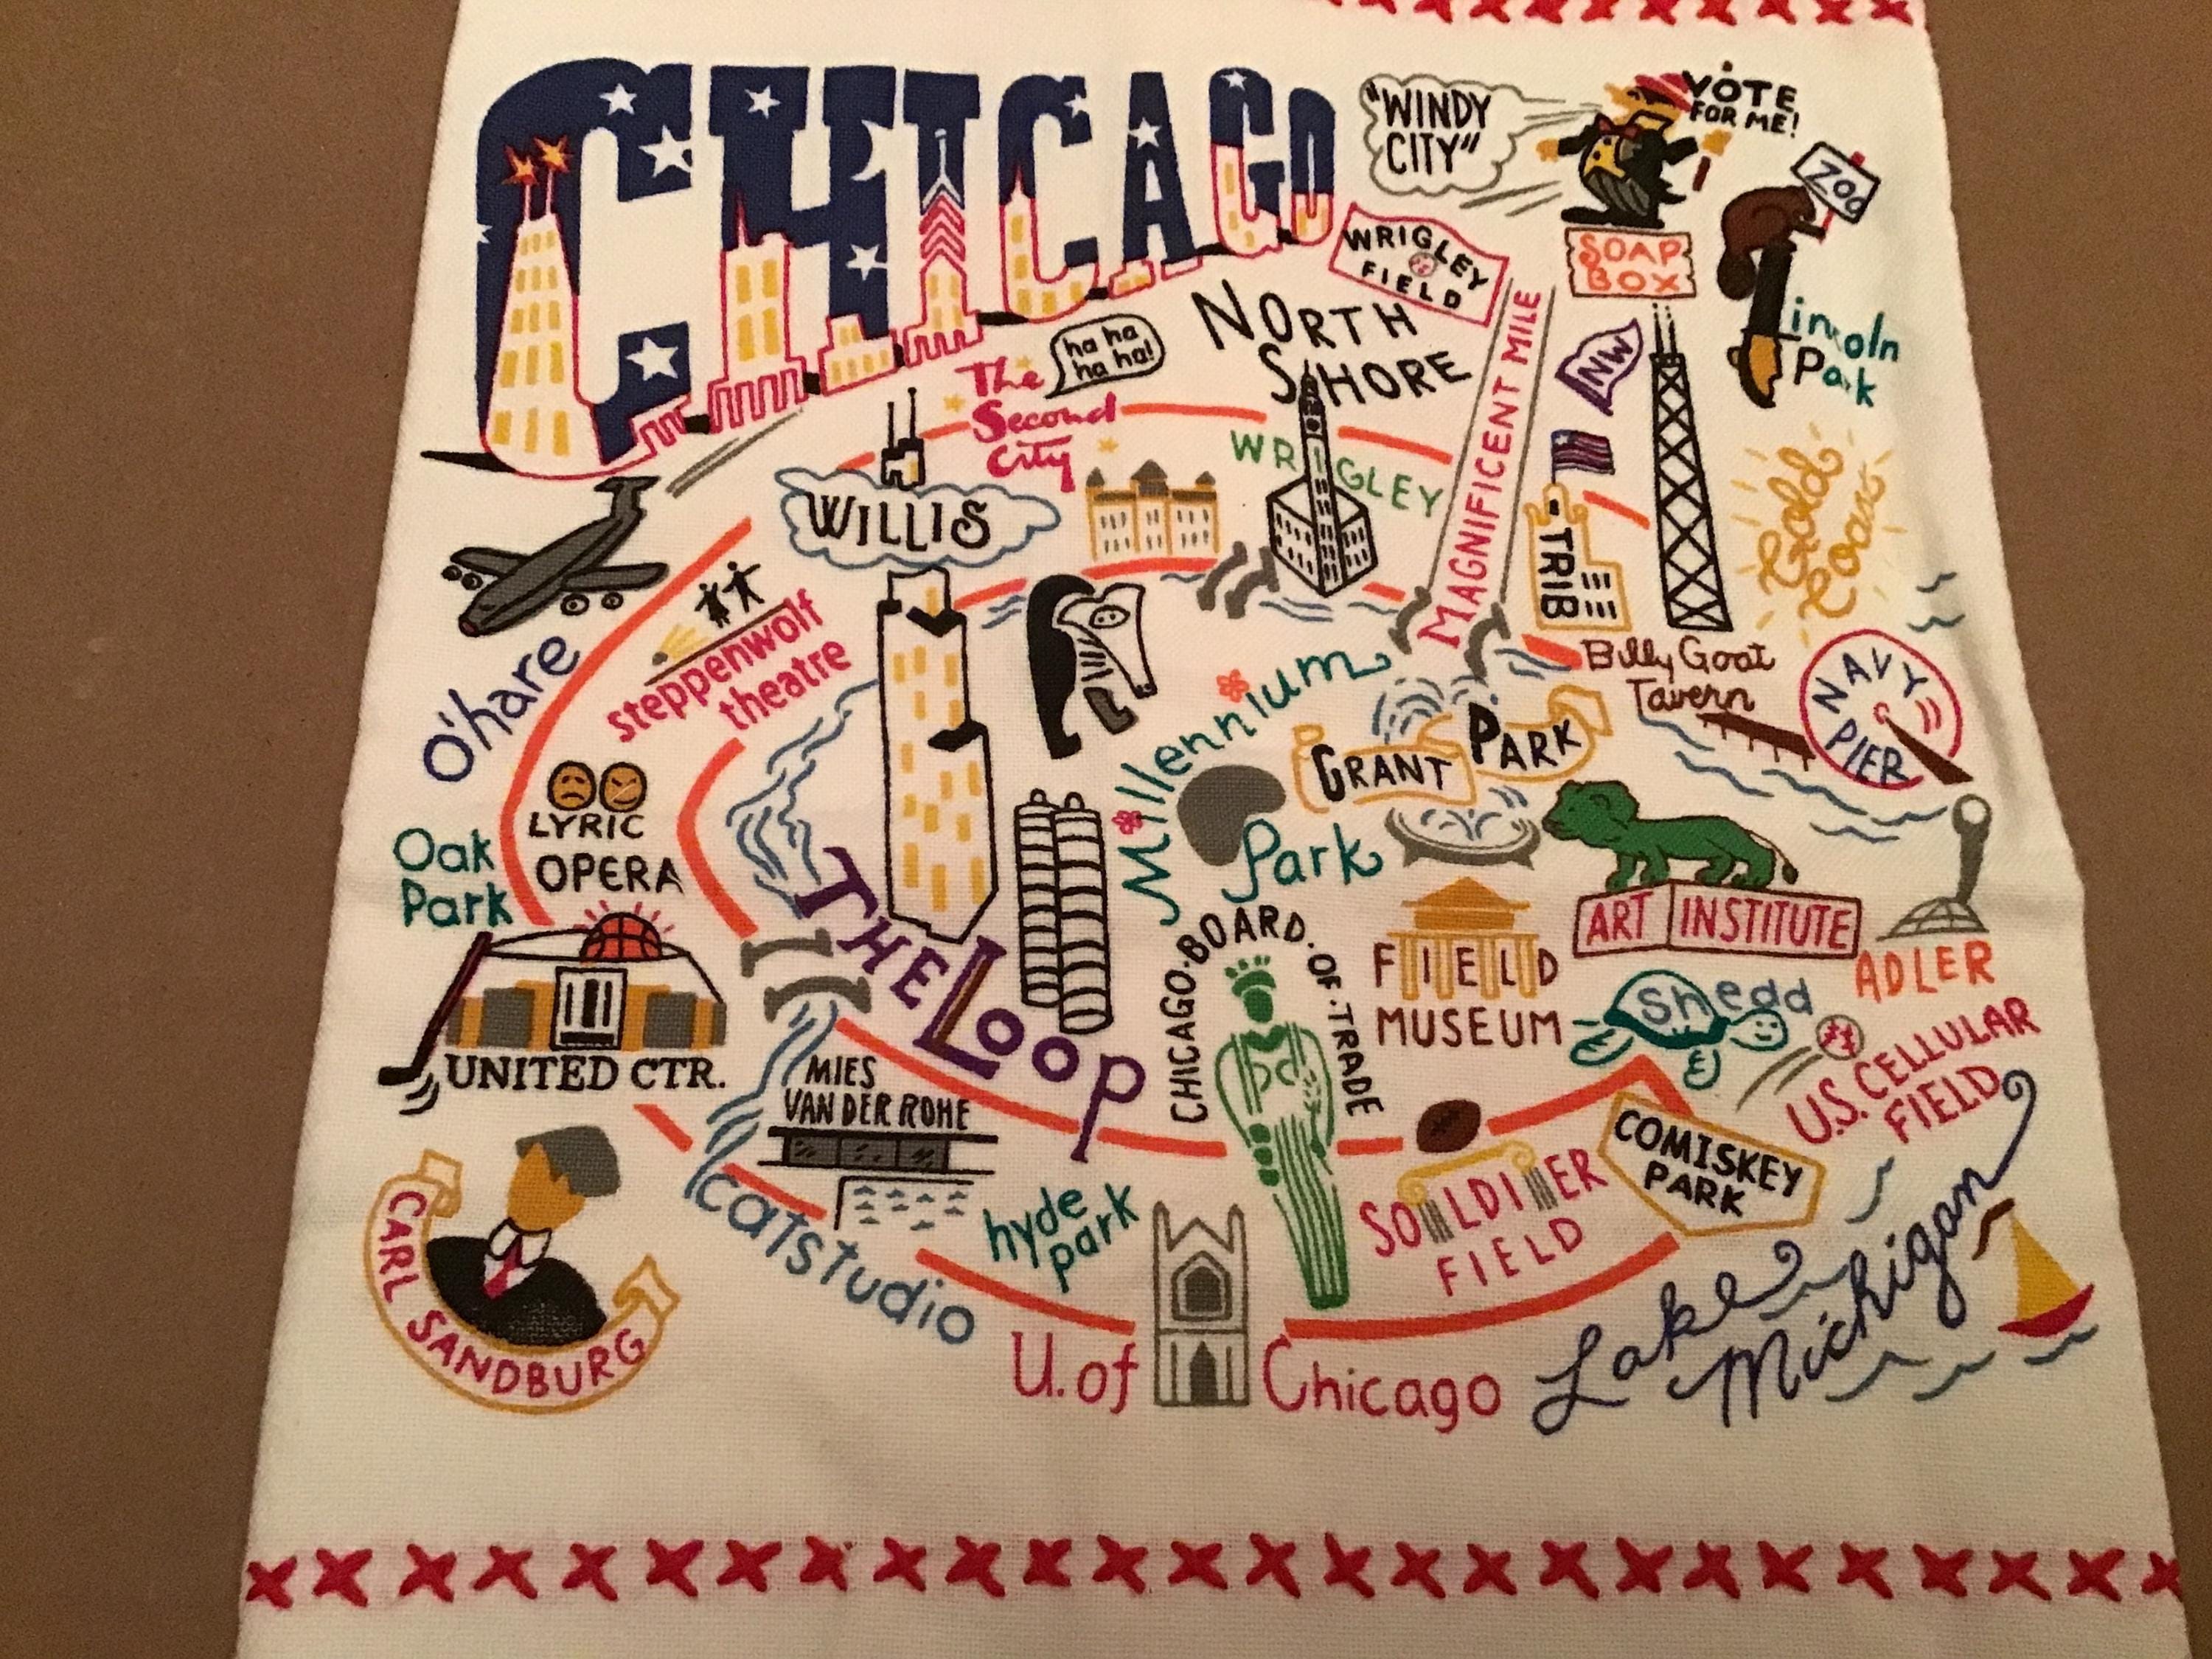 CHICAGO
"WINDY
CITY"
VOTE
FOR ME!
SOAP
BOX
ZOO
Lincoln
Park
WRIGLEY
FIELD
NORTH
SHORE
MAGNIFICENT MILE
NW
The
Second
City
ha ha
ha ha!
WILLIS
WRIGLEY
TRIB
Gold
Coast
Billy Goat
Tavern
NAVY
PIER
O'hare
steppenwolf
theatre
LYRIC
OPERA
Oak
Park
UNITED CTR.
THE LOOP
Millennium
Park
GRANT
PARK
ART INSTITUTE
ADLER
FIELD
MUSEUM
Shedd
U.S. CELLULAR
FIELD
CHICAGO·BOARD·OF·TRADE
MIES
VAN DER ROHE
CARL SANDBURG
catstudio
hyde
park
SOLDIER
FIELD
COMISKEY
PARK
U. of Chicago
Lake
Michigan